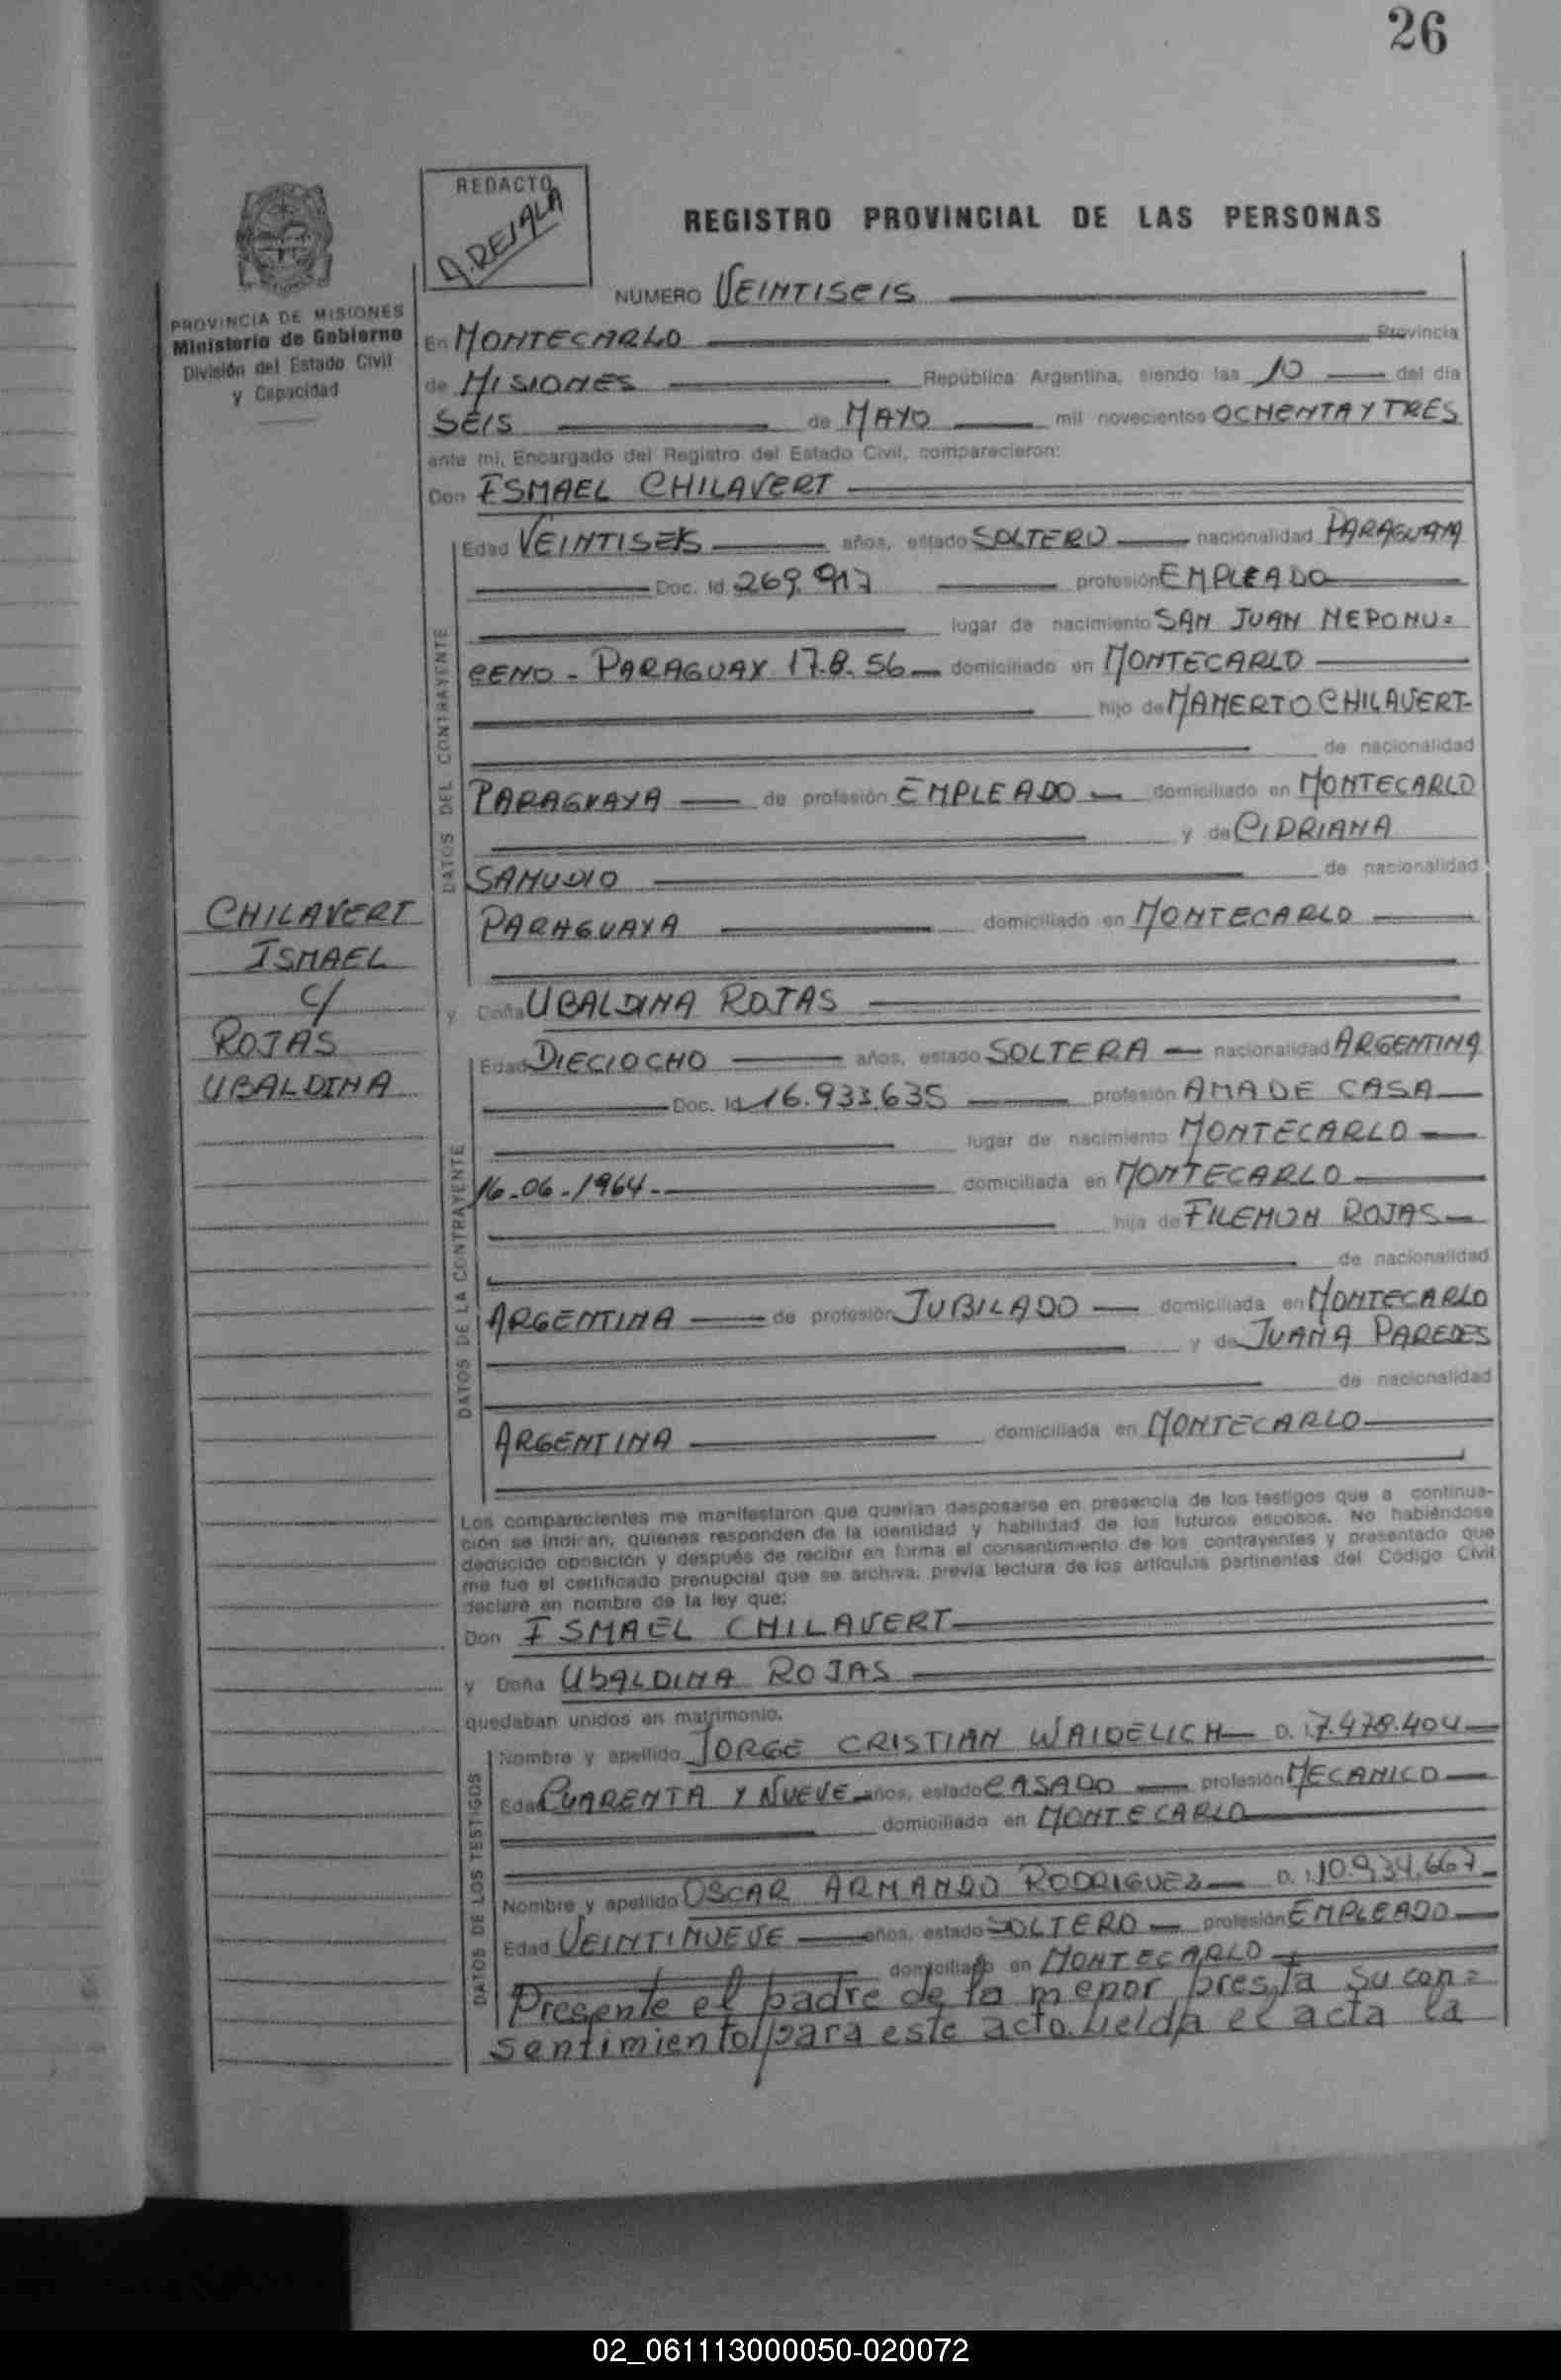 26
REDACTO
A. REJALA
REGISTRO PROVINCIAL DE LAS PERSONAS
PROVINCIA DE MISIONES
Ministerio de Gobierno
División del Estado Civil
y Capacidad
NUMERO VEINTISEIS
En MONTECARLO Provincia
de MISIONES República Argentina, siendo las 10 del día
SEIS de MAYO mil novecientos OCHENTA Y TRES
ante mí, Encargado del Registro del Estado Civil, comparecieron:
Don ISMAEL CHILAVERT
DATOS DEL CONTRAYENTE
Edad VEINTISEIS años, estado SOLTERO nacionalidad PARAGUAYA
Doc. Id. 269.917 profesión EMPLEADO
lugar de nacimiento SAN JUAN NEPONU=
CENO - PARAGUAY 17.8.56 domiciliado en MONTECARLO
hijo de MAMERTO CHILAVERT-
de nacionalidad
PARAGUAYA de profesión EMPLEADO domiciliado en MONTECARLO
y de CIPRIANA
SAMUDIO de nacionalidad
PARAGUAYA domiciliado en MONTECARLO
CHILAVERT
ISMAEL
c/
ROJAS
UBALDINA
y Doña UBALDINA ROJAS
DATOS DE LA CONTRAYENTE
Edad DIECIOCHO años, estado SOLTERA nacionalidad ARGENTINA
Doc. Id. 16.933.635 profesión AMA DE CASA
lugar de nacimiento MONTECARLO
16-06-1964- domiciliada en MONTECARLO
hija de FILEMON ROJAS
de nacionalidad
ARGENTINA de profesión JUBILADO domiciliada en MONTECARLO
y de JUANA PAREDES
de nacionalidad
ARGENTINA domiciliada en MONTECARLO
Los comparecientes me manifestaron que querían desposarse en presencia de los testigos que a continua-
ción se indican, quienes responden de la identidad y habilidad de los futuros esposos. No habiéndose
deducido oposición y después de recibir en forma el consentimiento de los contrayentes y presentado que
me fue el certificado prenupcial que se archiva, previa lectura de los artículos pertinentes del Código Civil
declaré en nombre de la ley que:
Don ISMAEL CHILAVERT
y Doña UBALDINA ROJAS
quedaban unidos en matrimonio.
DATOS DE LOS TESTIGOS
Nombre y apellido JORGE CRISTIAN WAIDELICH D. I. 7.478.404
Edad CUARENTA Y NUEVE años, estado CASADO profesión MECANICO
domiciliado en MONTECARLO
Nombre y apellido OSCAR ARMANDO RODRIGUEZ D. I. 10.934.667
Edad VEINTINUEVE años, estado SOLTERO profesión EMPLEADO
domiciliado en MONTECARLO
Presente el padre de la menor presta su con=
sentimiento para este acto. Leída el acta la
02_061113000050-020072